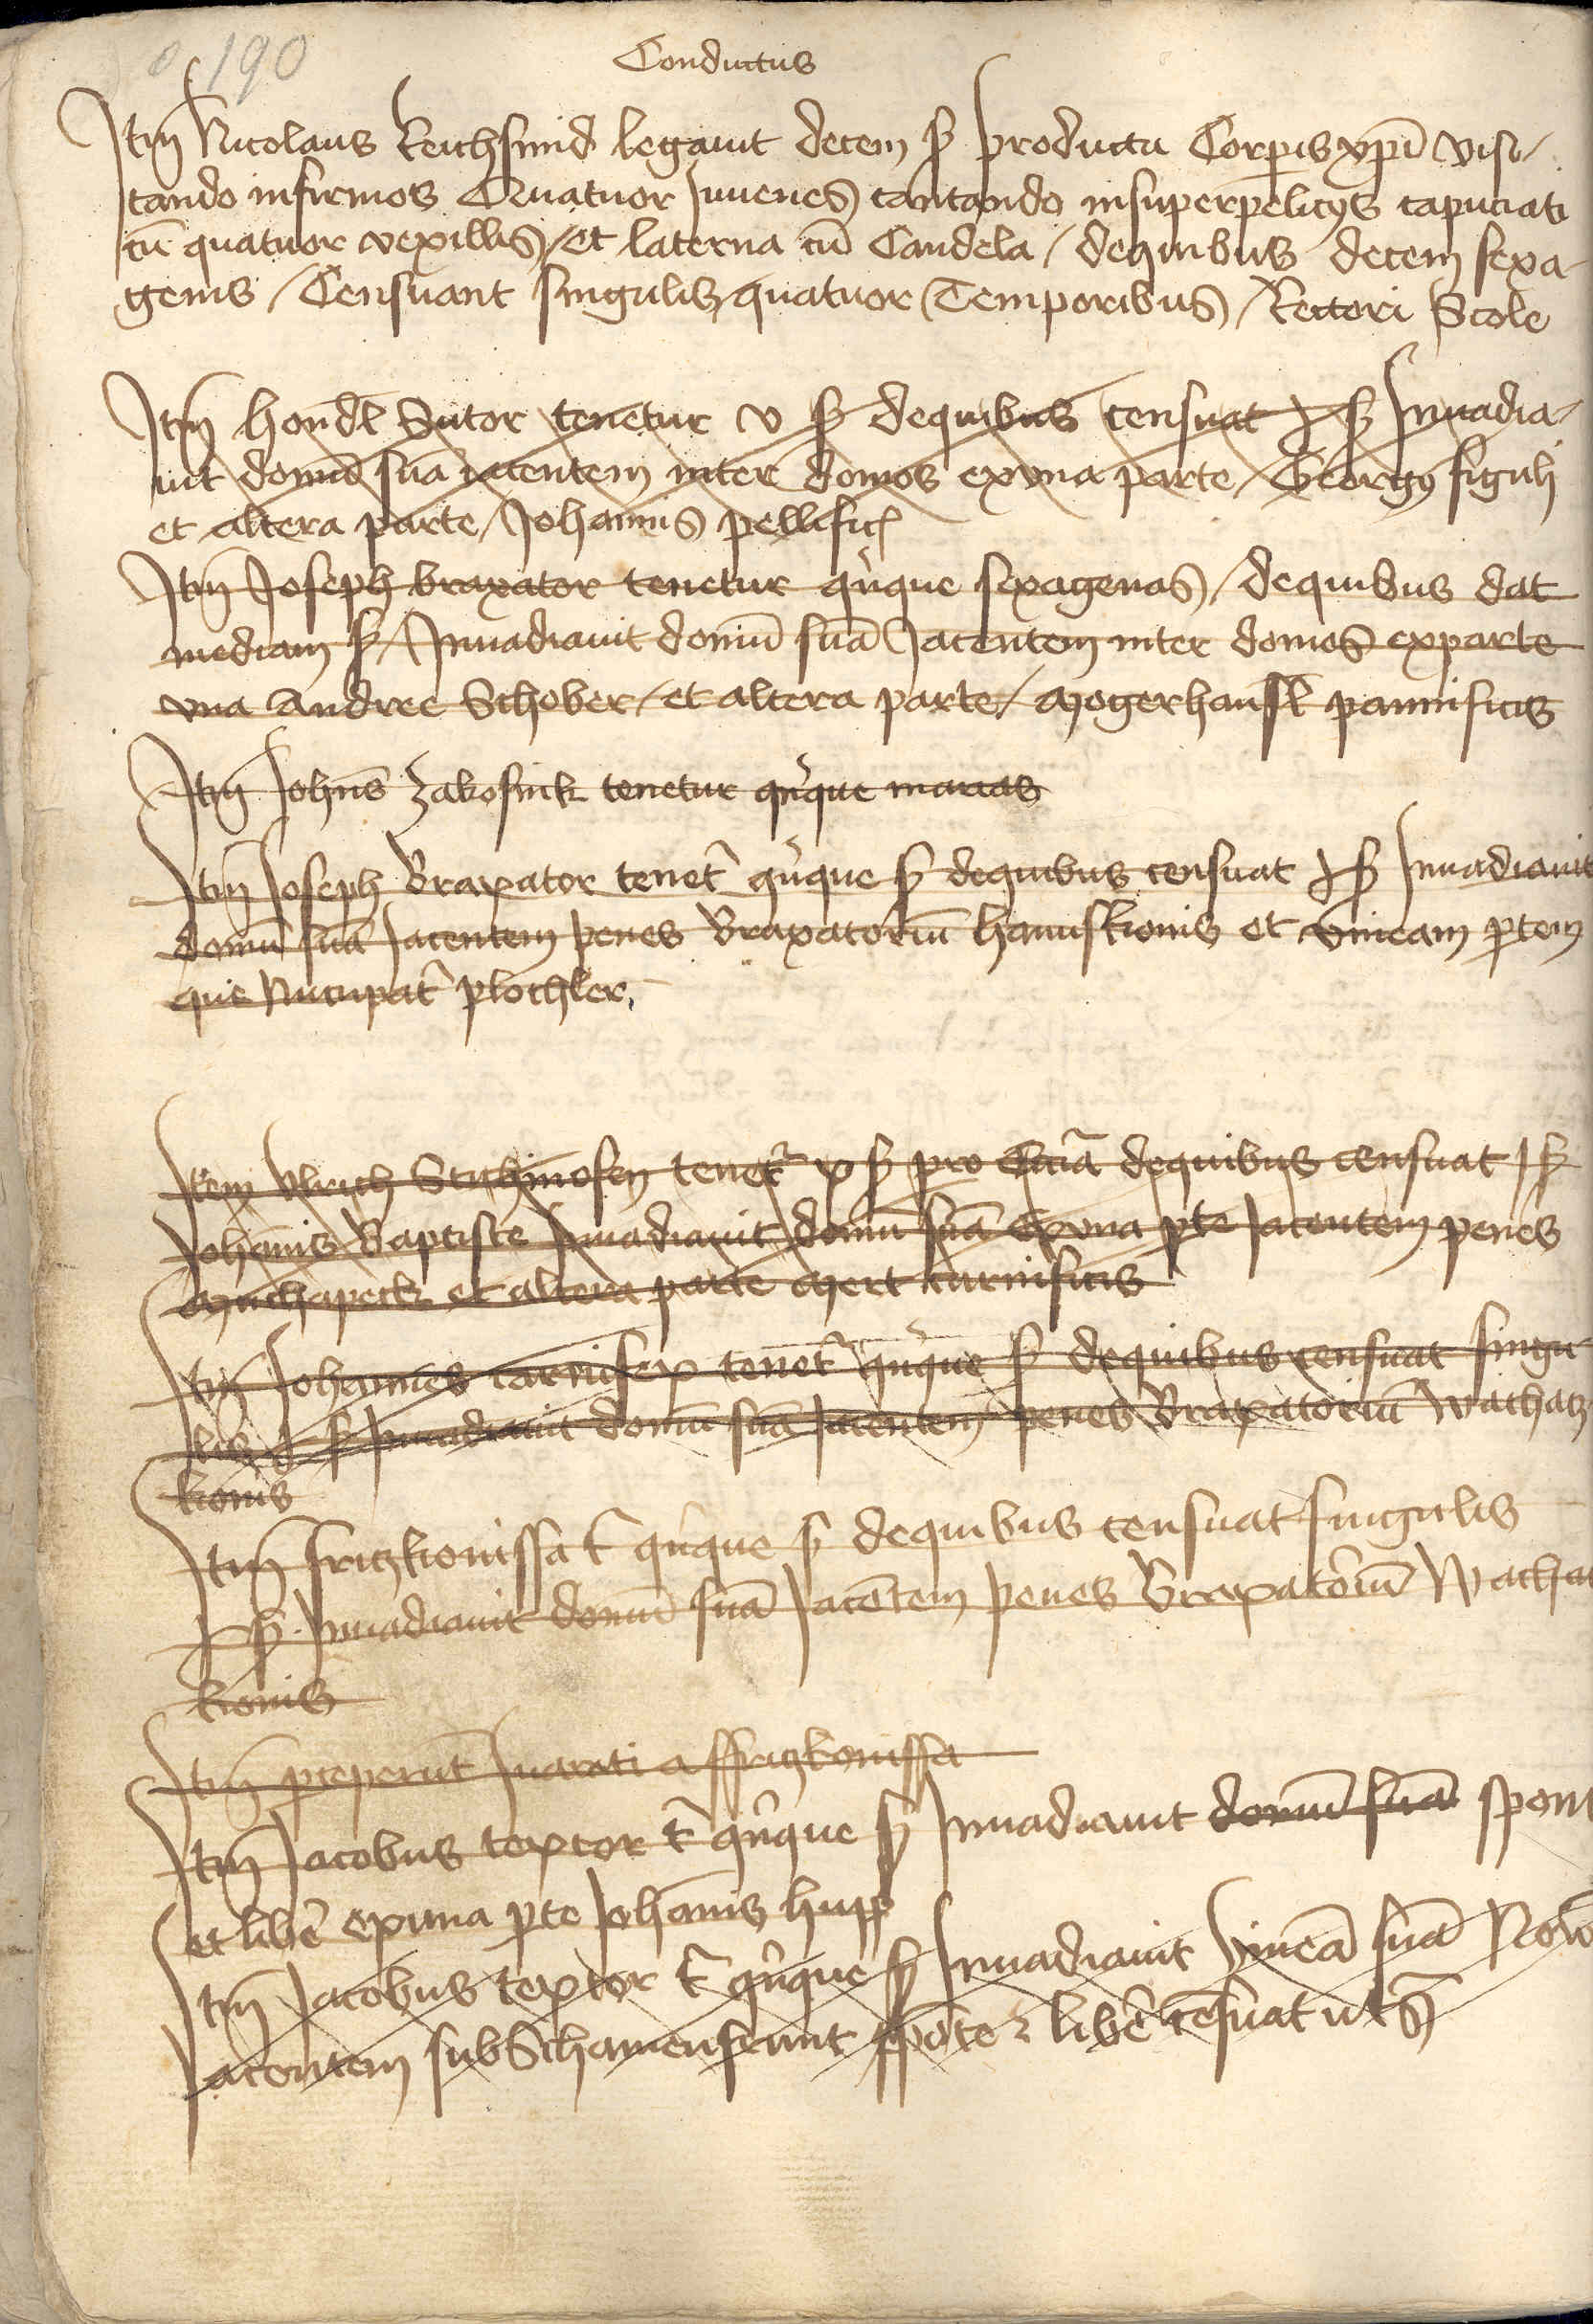 190
Conductus
Itm̄ Nicolaus Reichsmid legauit decem ß productu Corpis xp̄i visi/
tando infirmos Quatuor Iuuenes cantando insuperpelicijs capuciati
cū quatuor vexillis / et laterna cū Candela / dequibus decem sexa-
genis / Censuant singulis quatuor Temporibus / Rectori Scole
Itm̄ hondl Sutor tenetur v ß dequibus censuat ß Inuadia-
uit domū suā iacentem inter domos exvna parte / Georgij figuli
et altera parte / Johannis pellific
Itm̄ Joseph braxator tenetur qinque sexagenas / dequibus dat
mediam ß / Inuadiauit domū suā Iacentem inter domos exparte
vna Andree Schober / et altera parte / Mogerhansl pannificis
Itm̄ Johns Zakosink tenetur qinque marcas
Itm̄ Joseph Braxator tenet qinque ß dequibus censuat ß Inuadiauit
domū suā Iacentem penes Braxatoriū hanuskonis et vineam ptem
que Nucupat plochler
Item Vlrich Stichinosen tenet v ß pro dequibus censuat ß
Johānis Baptiste Inuadiauit domū suā Exvna pte Iacentem penes
Muchapeck et altera parte Mert carnificis
Itm̄ Johannes carnifex tenet qinque ß dequibus censuat singu
lis ß Inuadiauit domū suā Iacentem penes Braxatoriū Wathatz
konis
Itm̄ fritzkonissa t qinque ß dequibus censuat singulis
ß Inuadiauit domū suā Iacētem penes Braxatoriū Wathat
konis
Itm̄ pceperūt Iurati a ffritzkonissa
Itm̄ Jacobus textor t qinque ß Inuadiauit domū suā spont
et libe exuna pte Johānis hupp
Itm̄ Jacobus textor t qinque ß Inuadiauit Vineā suā
Iacentem sub Schamensrunt spōte libe cēsuat ut s